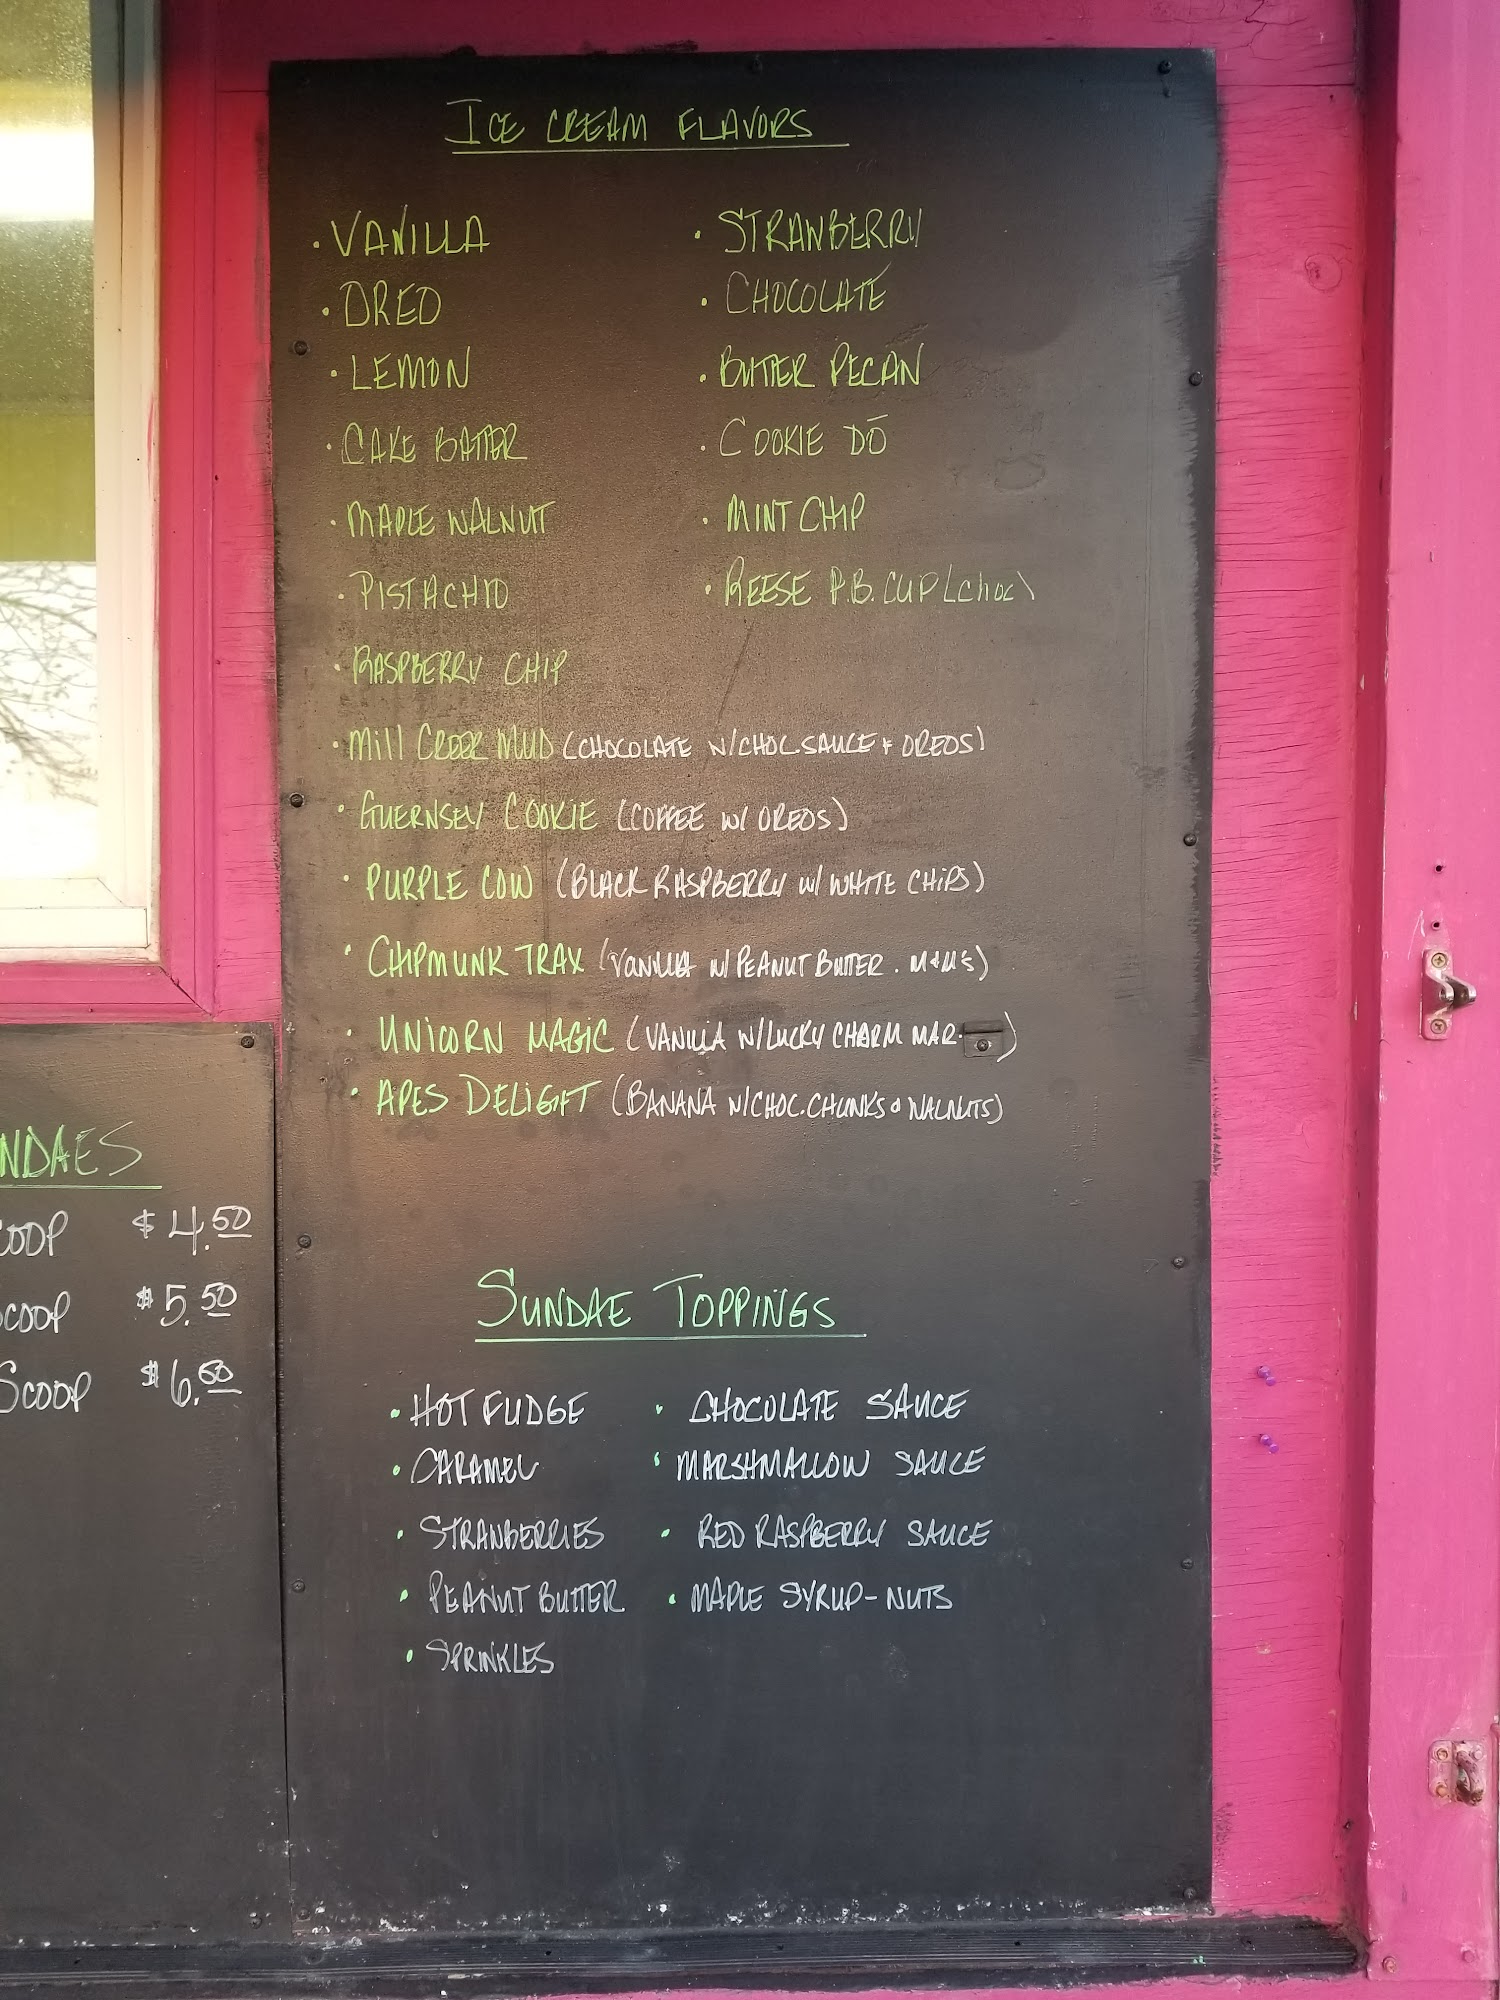 ICE CREAM FLAVORS
· VANILLA
· OREO
· LEMON
· CAKE BATTER
· MAPLE WALNUT
· PISTACHIO
· RASPBERRY CHIP
· STRAWBERRY
· CHOCOLATE
· BUTTER PECAN
· COOKIE DŌ
· MINT CHIP
· REESE P.B. CUP (choc)
· Mill CREEK MUD (CHOCOLATE W/CHOC.SAUCE + OREOS)
· GUERNSEY COOKIE (COFFEE W/ OREOS)
· PURPLE COW (BLACK RASPBERRY W/ WHITE CHIPS)
· CHIPMUNK TRAX (VANILLA W/ PEANUT BUTTER. M+M'S)
· UNICORN MAGIC (VANILLA W/LUCKY CHARM MAR.)
· APES DELIGHT (BANANA W/CHOC.CHUNKS & WALNUTS)
NDAES
COOP $4.50
SCOOP $5.50
SCOOP $6.50
SUNDAE TOPPINGS
· HOT FUDGE
· CARAMEL
· STRAWBERRIES
· PEANUT BUTTER
· SPRINKLES
· CHOCOLATE SAUCE
· MARSHMALLOW SAUCE
· RED RASPBERRY SAUCE
· MAPLE SYRUP-NUTS